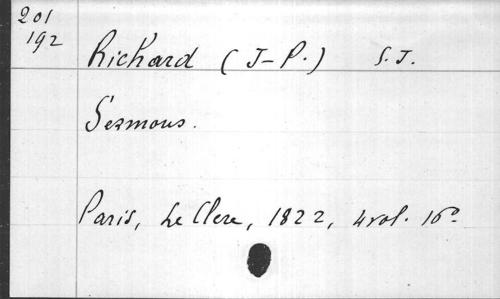 201
192
Richard (J-P.) S.J.
Sermons.
Paris, Le Clere, 1822, 4 vol. 16°